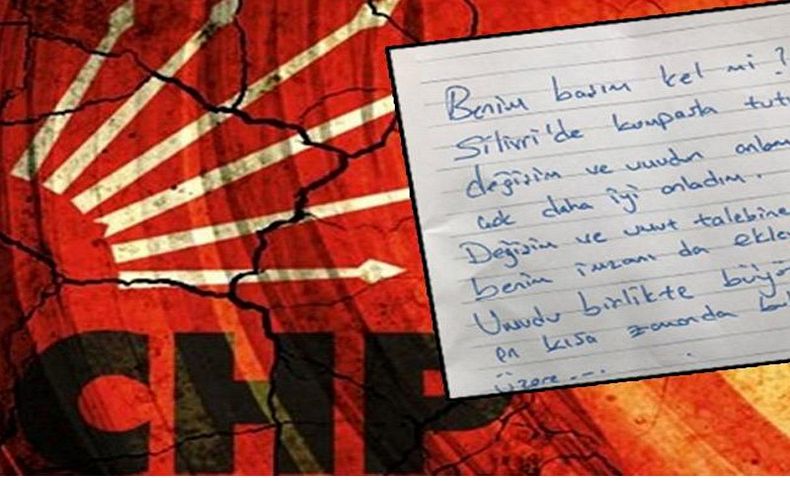 CHP
Benim başım kel mi?
Silivri'de kumpasla tutu
değişim ve umudun anlam
çok daha iyi anladım.
Değişim ve umut talebine
benim imzamı da ekle
Umudu birlikte büyü
en kısa zamanda bul
üzere....